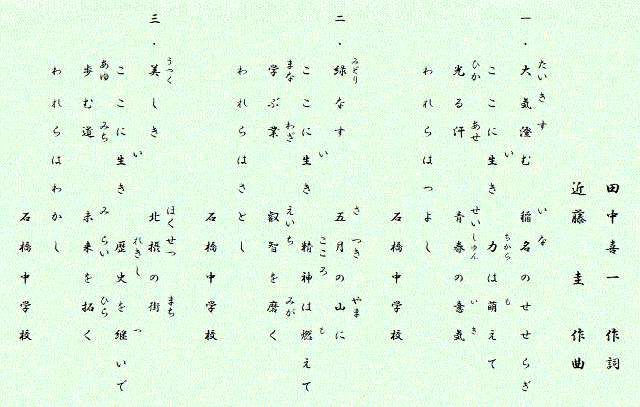 田中喜一 作詞
近藤 圭 作曲
一.大気澄む 稲名のせせらぎ
ここに生き 力は萌えて
光る汗 青春の意気
われらはつよし
石橋中学校
二.緑なす 五月の山に
ここに生き 精神は燃えて
学ぶ業 叡智を磨く
われらはさとし
石橋中学校
三.美しき 北摂の街
ここに生き 歴史を継いで
歩む道 未来を拓く
われらはわかし
石橋中学校